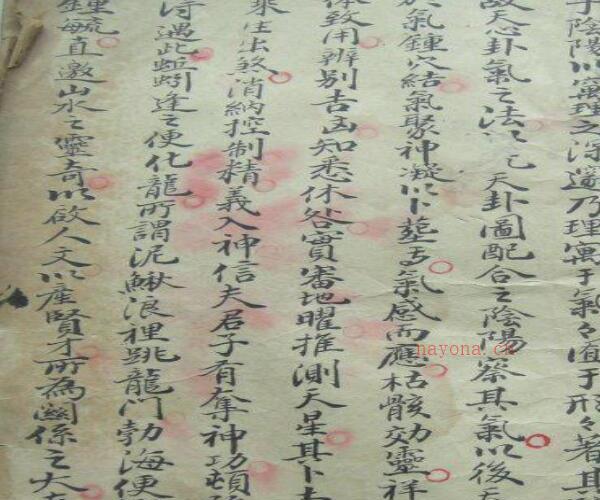 于陰陽以寓理之深邃乃理寓于氣々值于形々著其
故天心卦氣之法以元天卦圖配合之陰陽察其氣以後天
於氣鍾穴結氣聚神凝以卜塟高氣感而應枯骸効靈祥
体致用辨别吉凶知悉休咎實審地曜推測天星其卜吉
來生出煞消納控制精義入神信夫君子有奪神功頓
得遇此蚯蚓逢之便化龍所謂泥鰍浪裡跳龍門勃海便
鍾毓直邀山水之靈奇以啟人文以產賢才所為關係之大
nayona.cn